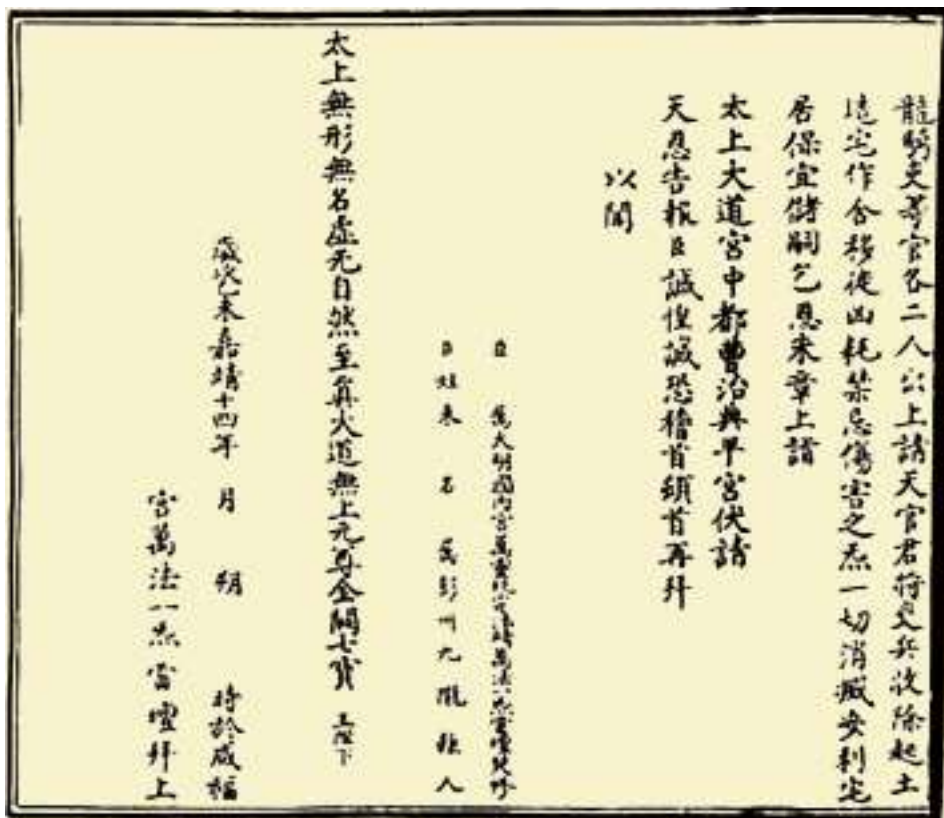 龍騎吏等官各二人以上請天官君将吏兵收除起土
造宅作舍移徙凶耗禁忌傷害之炁一切消滅安利宅
居保宜儲嗣乞恩朱章上詣
太上大道宮中都曹治典平宮伏請
天恩告報臣誠惶誠恐稽首頓首再拜
以聞
臣 屬大明國內宮萬法一炁雷壇
臣姓朱 名 屬彭州九隴縣人
太上無形無名虛无自然至真大道無上元尊金闕七寶 玉陛下
歲次乙未嘉靖十四年 月 朔 時於咸福
宮萬法一炁雷壇拜上